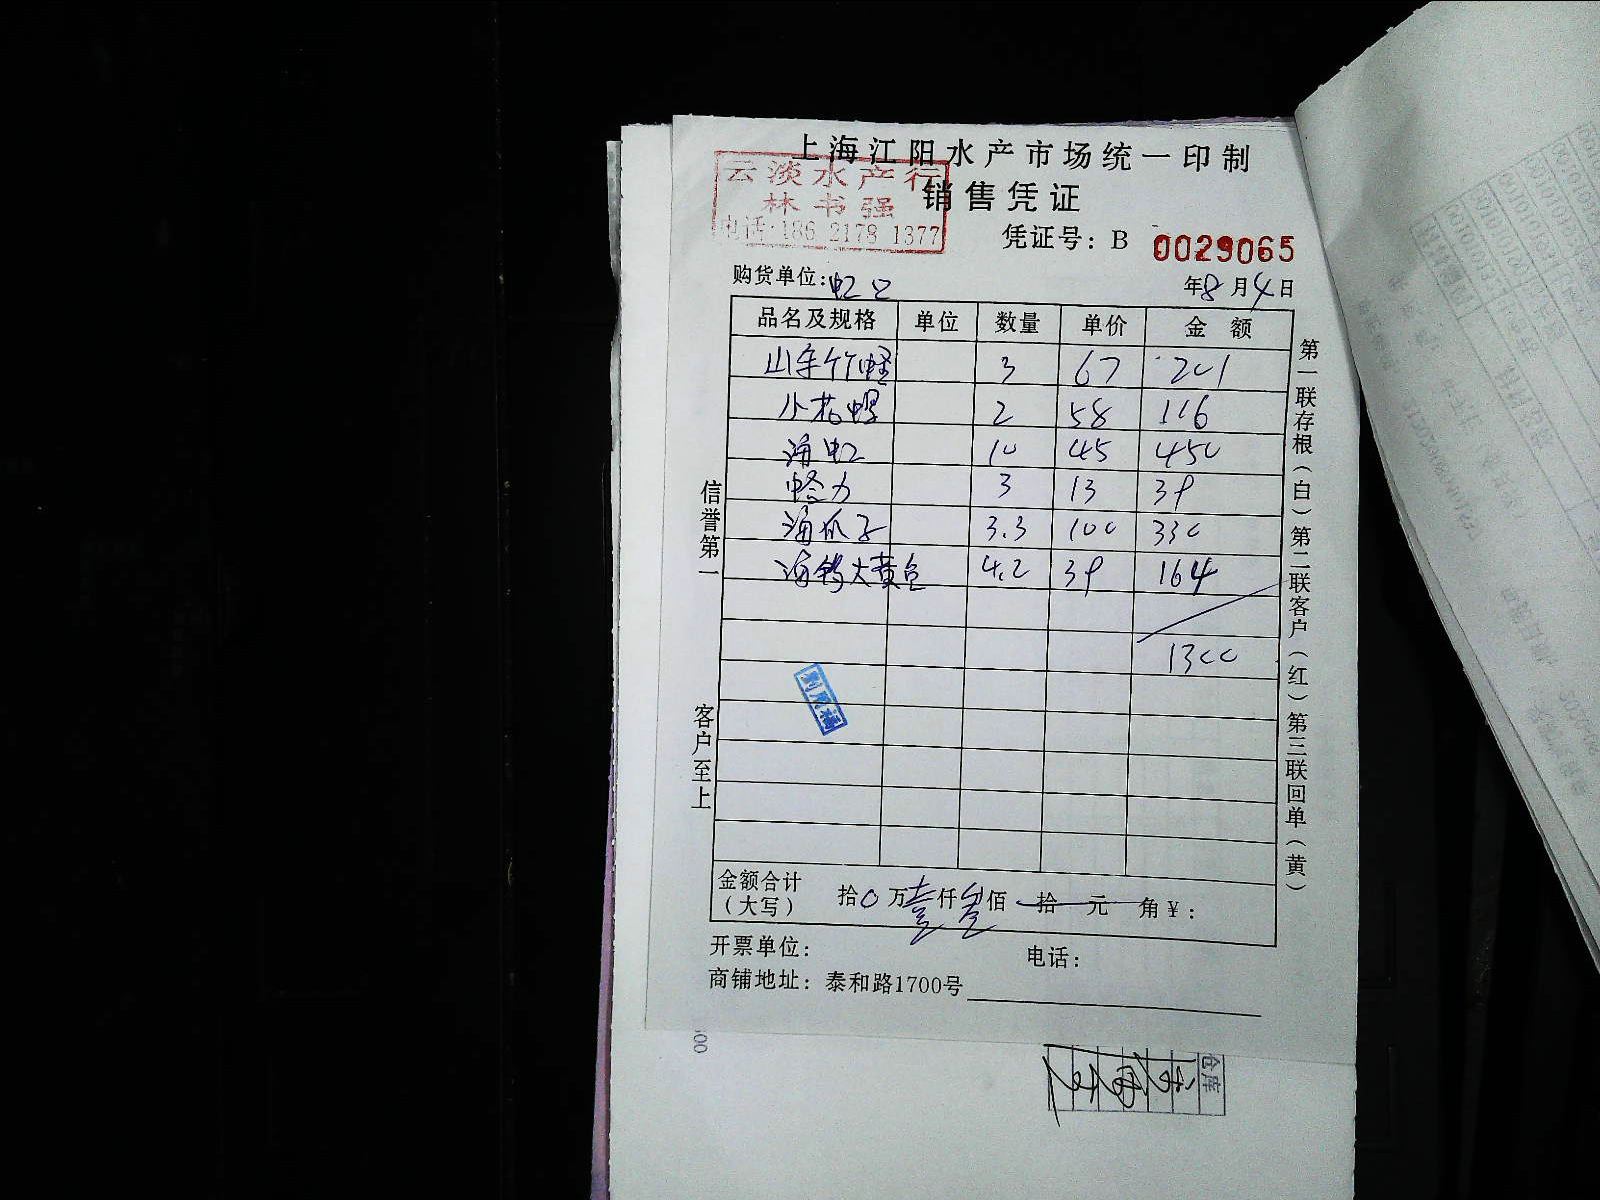 上海江阳水产市场统一印制
云淡水产行
林书强
电话:186 2178 1377
销售凭证
凭证号: B 0029065
购货单位:虹口
年8月4日
品名及规格 单位 数量 单价 金 额
山东竹蛏 3 67 201
小花螺 2 58 116
海虹 10 45 450
3 13 39
海瓜子 3.3 100 330
海 大黄鱼 4.2 39 164
1300
信誉第一
客户至上
第一联存根(白)第二联客户(红)第三联回单(黄)
金额合计(大写) 拾0万壹仟叁佰拾元角¥:
开票单位: 电话:
商铺地址: 泰和路1700号
仓库
00